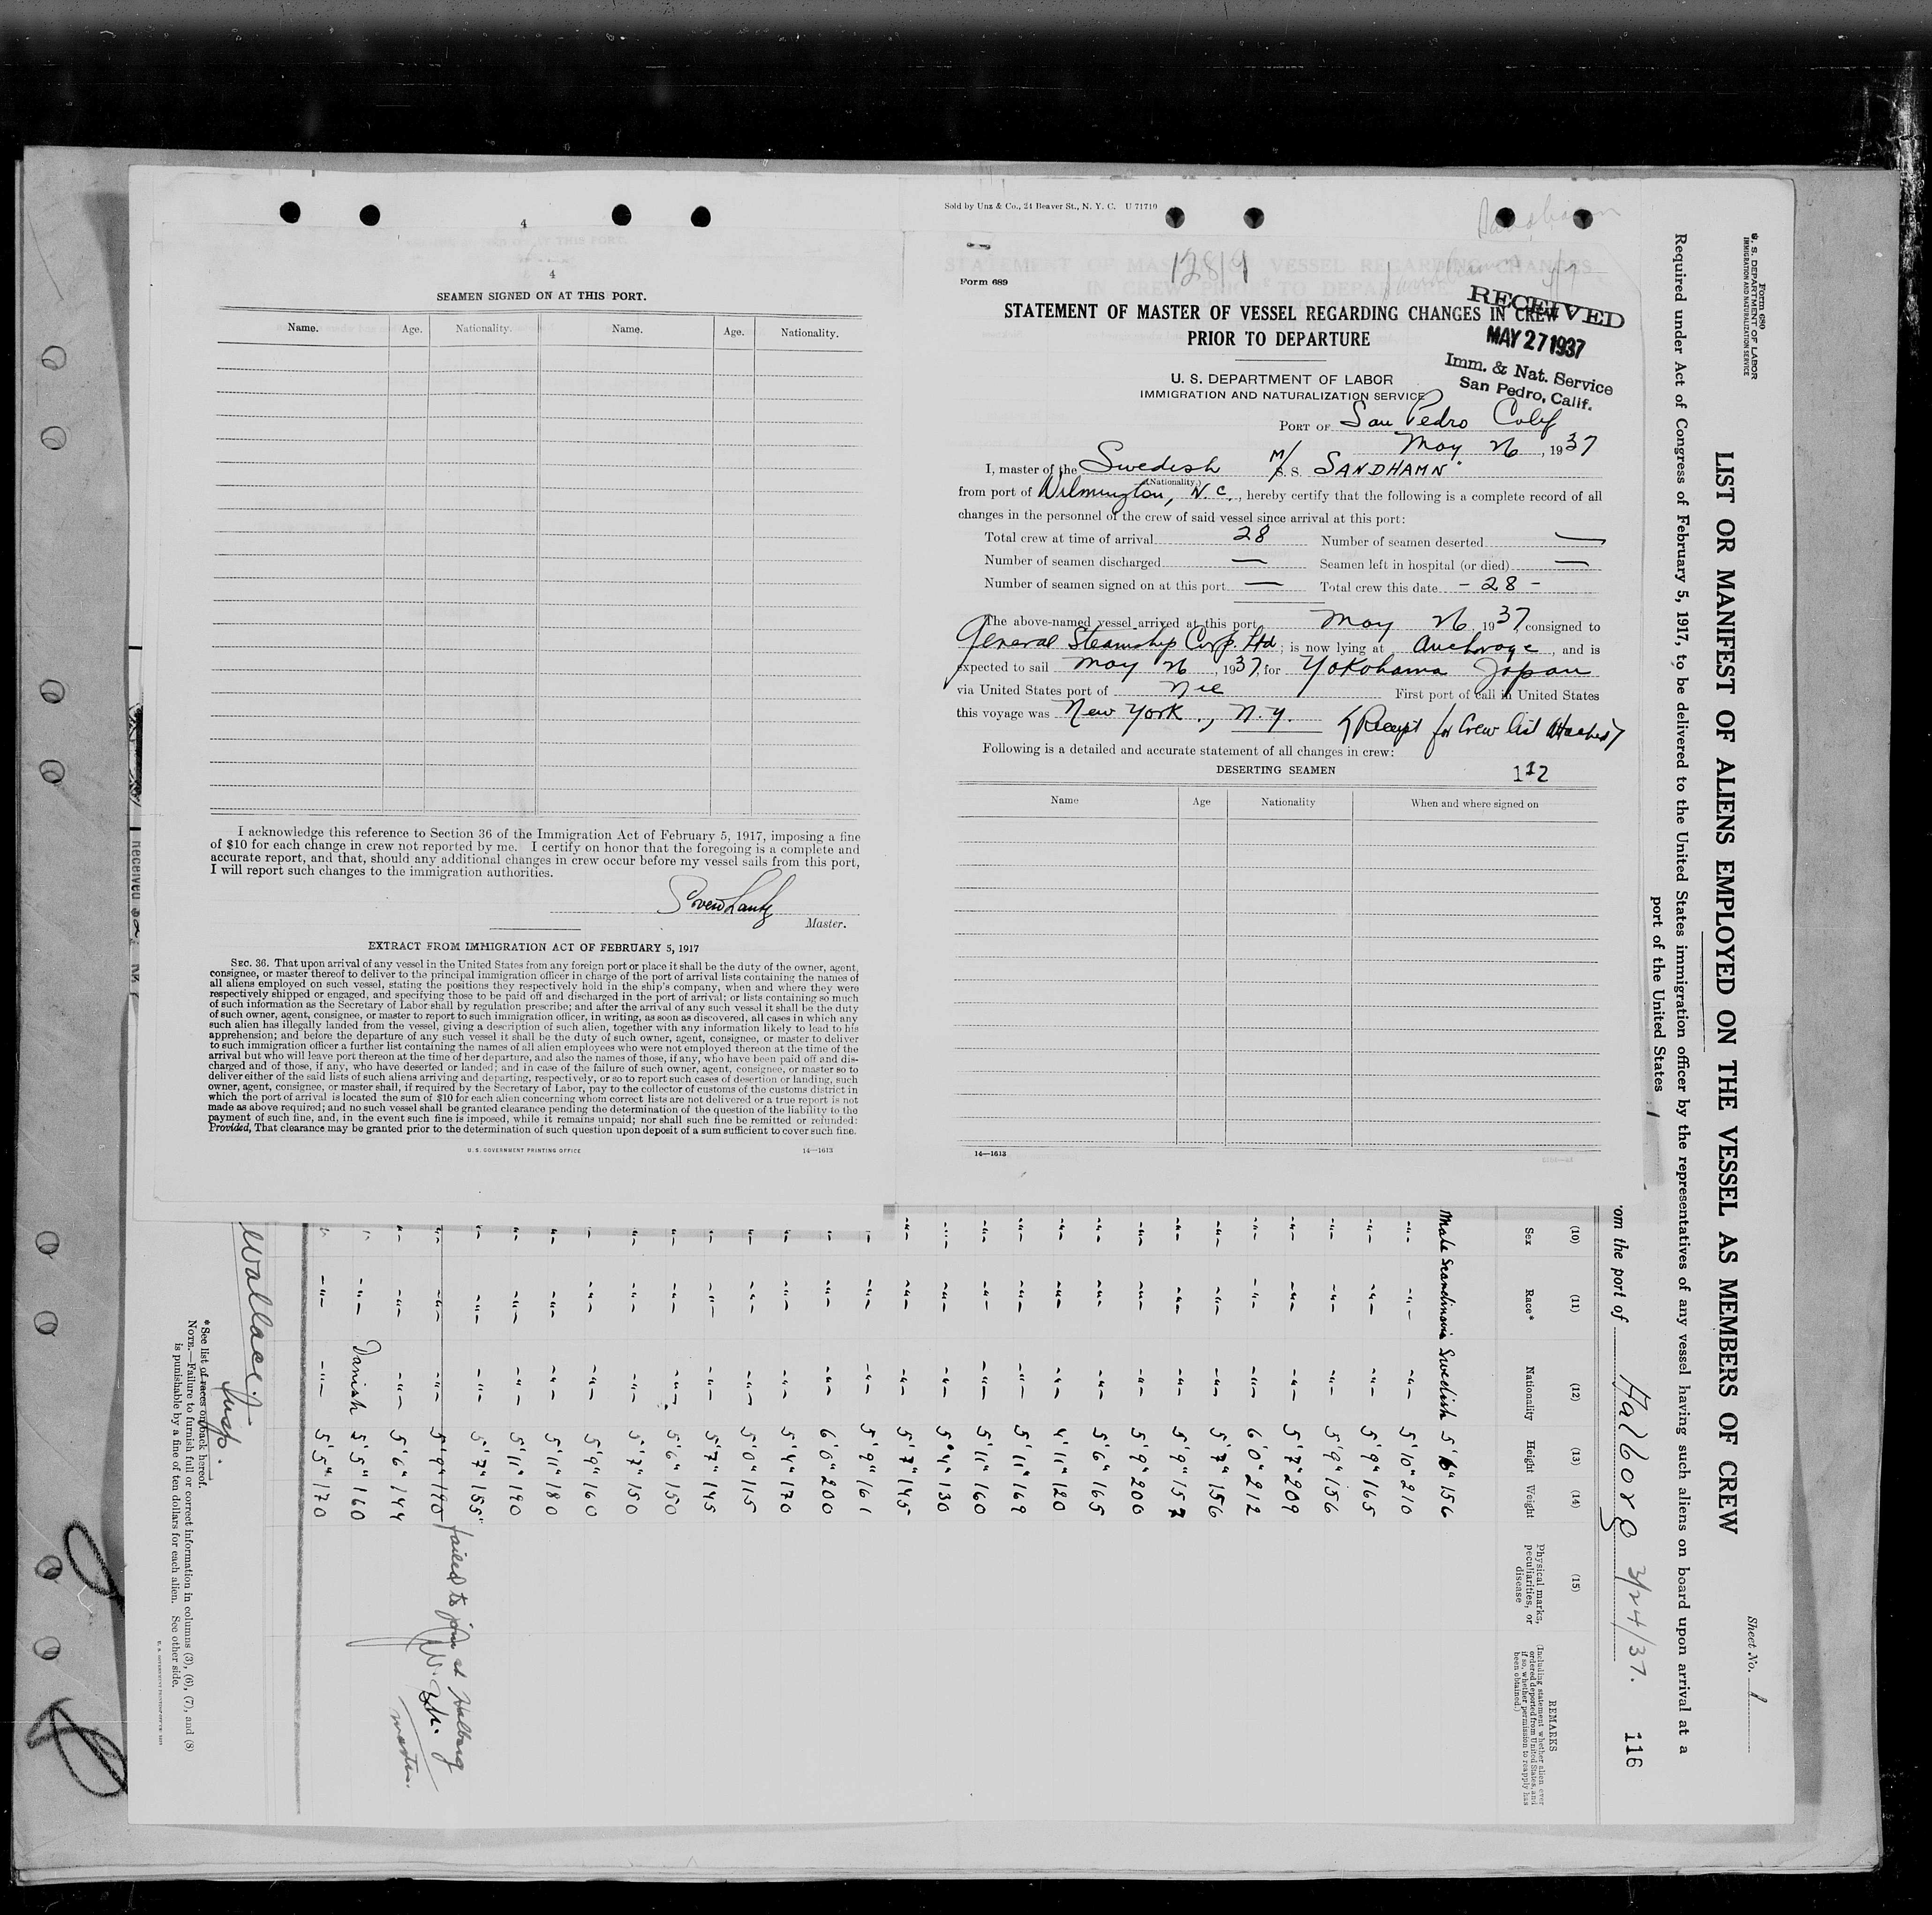 4
4
SEAMEN SIGNED ON AT THIS PORT.
Name. Age. Nationality. Name. Age. Nationality.
I acknowledge this reference to Section 36 of the Immigration Act of February 5, 1917, imposing a fine
of $10 for each change in crew not reported by me. I certify on honor that the foregoing is a complete and
accurate report, and that, should any additional changes in crew occur before my vessel sails from this port,
I will report such changes to the immigration authorities.
Master.
EXTRACT FROM IMMIGRATION ACT OF FEBRUARY 5, 1917
SEC. 36. That upon arrival of any vessel in the United States from any foreign port or place it shall be the duty of the owner, agent,
consignee, or master thereof to deliver to the principal immigration officer in charge of the port of arrival lists containing the names of
all aliens employed on such vessel, stating the positions they respectively hold in the ship's company, when and where they were
respectively shipped or engaged, and specifying those to be paid off and discharged in the port of arrival; or lists containing so much
of such information as the Secretary of Labor shall by regulation prescribe; and after the arrival of any such vessel it shall be the duty
of such owner, agent, consignee, or master to report to such immigration officer, in writing, as soon as discovered, all cases in which any
such alien has illegally landed from the vessel, giving a description of such alien, together with any information likely to lead to his
apprehension; and before the departure of any such vessel it shall be the duty of such owner, agent, consignee, or master to deliver
to such immigration officer a further list containing the names of all alien employees who were not employed thereon at the time of the
arrival but who will leave port thereon at the time of her departure, and also the names of those, if any, who have been paid off and dis-
charged and of those, if any, who have deserted or landed; and in case of the failure of such owner, agent, consignee, or master so to
deliver either of the said lists of such aliens arriving and departing, respectively, or so to report such cases of desertion or landing, such
owner, agent, consignee, or master shall, if required by the Secretary of Labor, pay to the collector of customs of the customs district in
which the port of arrival is located the sum of $10 for each alien concerning whom correct lists are not delivered or a true report is not
made as above required; and no such vessel shall be granted clearance pending the determination of the question of the liability to the
payment of such fine, and, in the event such fine is imposed, while it remains unpaid; nor shall such fine be remitted or refunded:
Provided, That clearance may be granted prior to the determination of such question upon deposit of a sum sufficient to cover such fine.
U. S. GOVERNMENT PRINTING OFFICE 14—1613
Sold by Unz & Co., 24 Beaver St., N. Y. C. U 71710
Form 689
STATEMENT OF MASTER OF VESSEL REGARDING CHANGES IN CREW
PRIOR TO DEPARTURE
RECEIVED
MAY 27 1937
Imm. & Nat. Service
San Pedro, Calif.
U. S. DEPARTMENT OF LABOR
IMMIGRATION AND NATURALIZATION SERVICE
PORT OF San Pedro Calif
May 26, 1937
I, master of the Swedish M/S. S. SANDHAMN"
(Nationality)
from port of Wilmington, N.C., hereby certify that the following is a complete record of all
changes in the personnel of the crew of said vessel since arrival at this port:
Total crew at time of arrival 28 Number of seamen deserted —
Number of seamen discharged — Seamen left in hospital (or died) —
Number of seamen signed on at this port — Total crew this date - 28 -
The above-named vessel arrived at this port May 26, 1937, consigned to
General Steamship Corp. Ltd; is now lying at Anchorage, and is
expected to sail May 26, 1937, for Yokohama Japan
via United States port of Nil First port of call in United States
this voyage was New York., N.Y. (Receipt for Crew list attached)
Following is a detailed and accurate statement of all changes in crew:
DESERTING SEAMEN 112
Name Age Nationality When and where signed on
14—1613
Form 680
U. S. DEPARTMENT OF LABOR
IMMIGRATION AND NATURALIZATION SERVICE
Sheet No. 1
LIST OR MANIFEST OF ALIENS EMPLOYED ON THE VESSEL AS MEMBERS OF CREW
Required under Act of Congress of February 5, 1917, to be delivered to the United States immigration officer by the representatives of any vessel having such aliens on board upon arrival at a
port of the United States
om the port of Halborg 3/24/37. 116
(10) (11) (12) (13) (14) (15)
Sex Race* Nationality Height Weight Physical marks, peculiarities, or disease REMARKS
(Including statement whether alien ever
ordered deported from United States, and
if so, whether permission to reapply has
been obtained.)
Male Scandinavia Swedish 5'6" 156
-"- -"- -"- 5'10" 210
-"- -"- -"- 5'9" 165
-"- -"- -"- 5'9" 156
-"- -"- -"- 5'7" 209
-"- -"- -"- 6'0" 212
-"- -"- -"- 5'7" 156
-"- -"- -"- 5'9" 157
-"- -"- -"- 5'9" 200
-"- -"- -"- 5'6" 165
-"- -"- -"- 4'11" 120
-"- -"- -"- 5'11" 169
-"- -"- -"- 5'11" 160
-"- -"- -"- 5'4" 130
-"- -"- -"- 5'7" 145
-"- -"- 5'9" 161
-"- -"- -"- 6'0" 200
-"- -"- -"- 5'4" 170
-"- -"- -"- 5'0" 115
-"- -"- -"- 5'7" 145
-"- -"- -"- 5'6" 150
-"- -"- -"- 5'7" 150
-"- -"- 5'9" 160
-"- -"- -"- 5'11" 180
-"- -"- -"- 5'11" 190
-"- -"- -"- 5'7" 155
-"- -"- -"- 5'9" 190 failed to join at Halborg
-"- -"- -"- 5'6" 144 master.
-"- Danish 5'5" 160
-"- -"- 5'5" 170
Wallace Insp.
*See list of races on back hereof.
NOTE.—Failure to furnish full or correct information in columns (3), (6), (7), and (8)
is punishable by a fine of ten dollars for each alien. See other side.